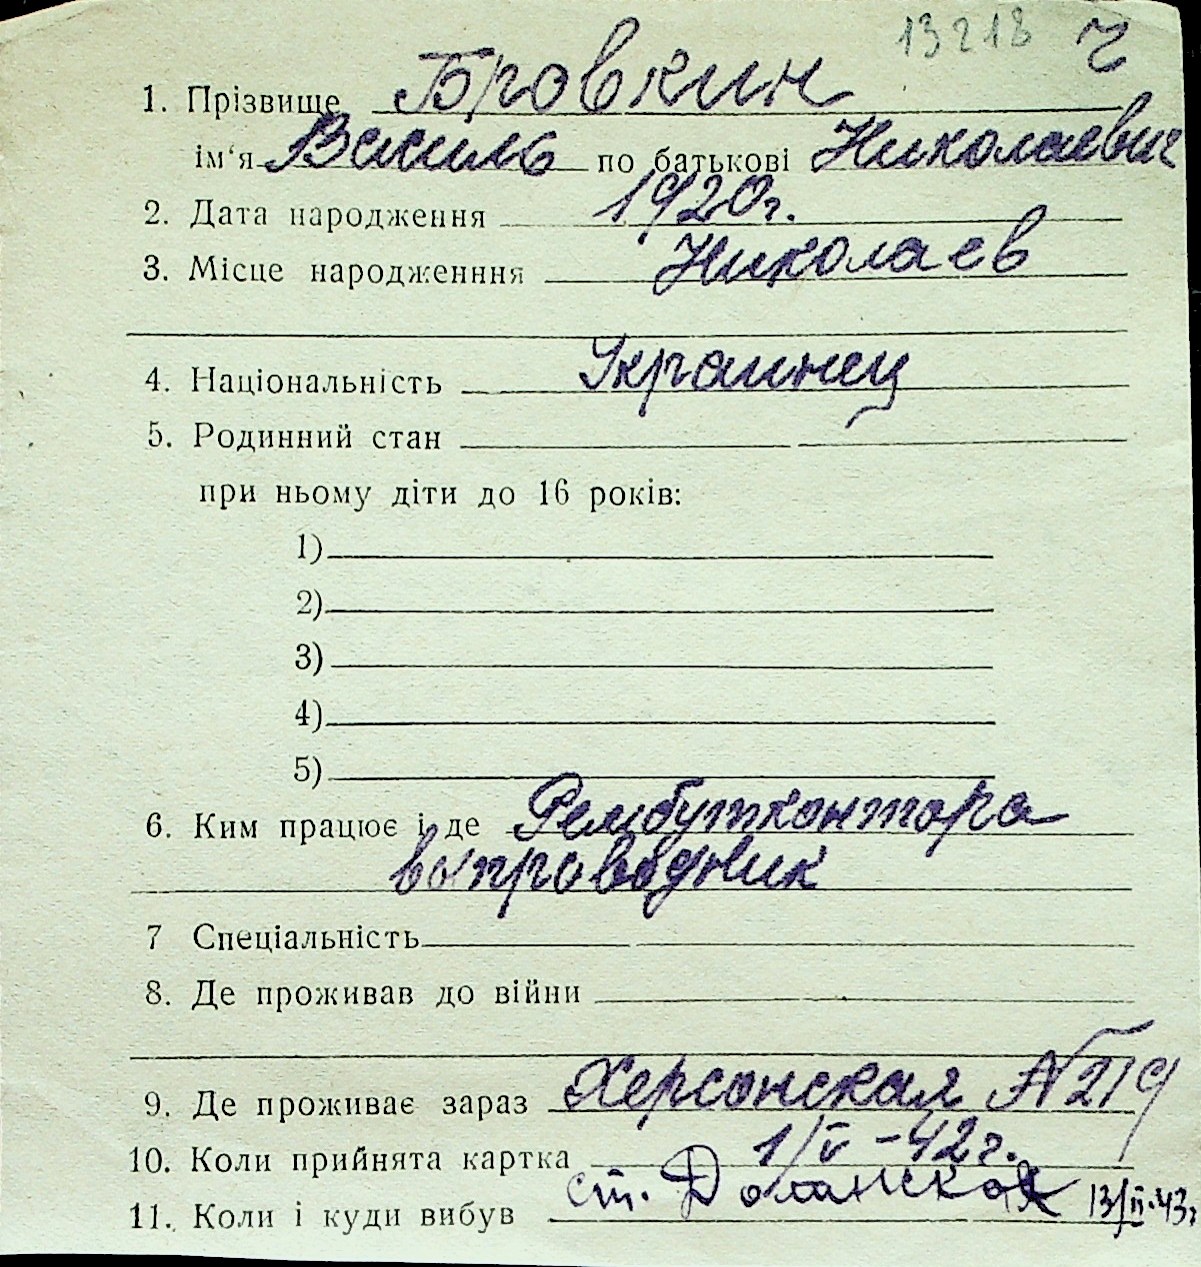 13218 ч
1. Прізвище Бровкин
ім'я Василь по батькові Николаевич
2. Дата народження 1920г.
3. Місце народженння Николаев
4. Національність Украинец
5. Родинний стан
при ньому діти до 16 років:
1)
2)
3)
4)
5)
6. Ким працює і де Рембутконтора
7 Спеціальність
8. Де проживав до війни
9. Де проживає зараз Херсонская №219
10. Коли прийнята картка 1/V-42г.
11. Коли і куди вибув ст. Долинская 13/II.43г